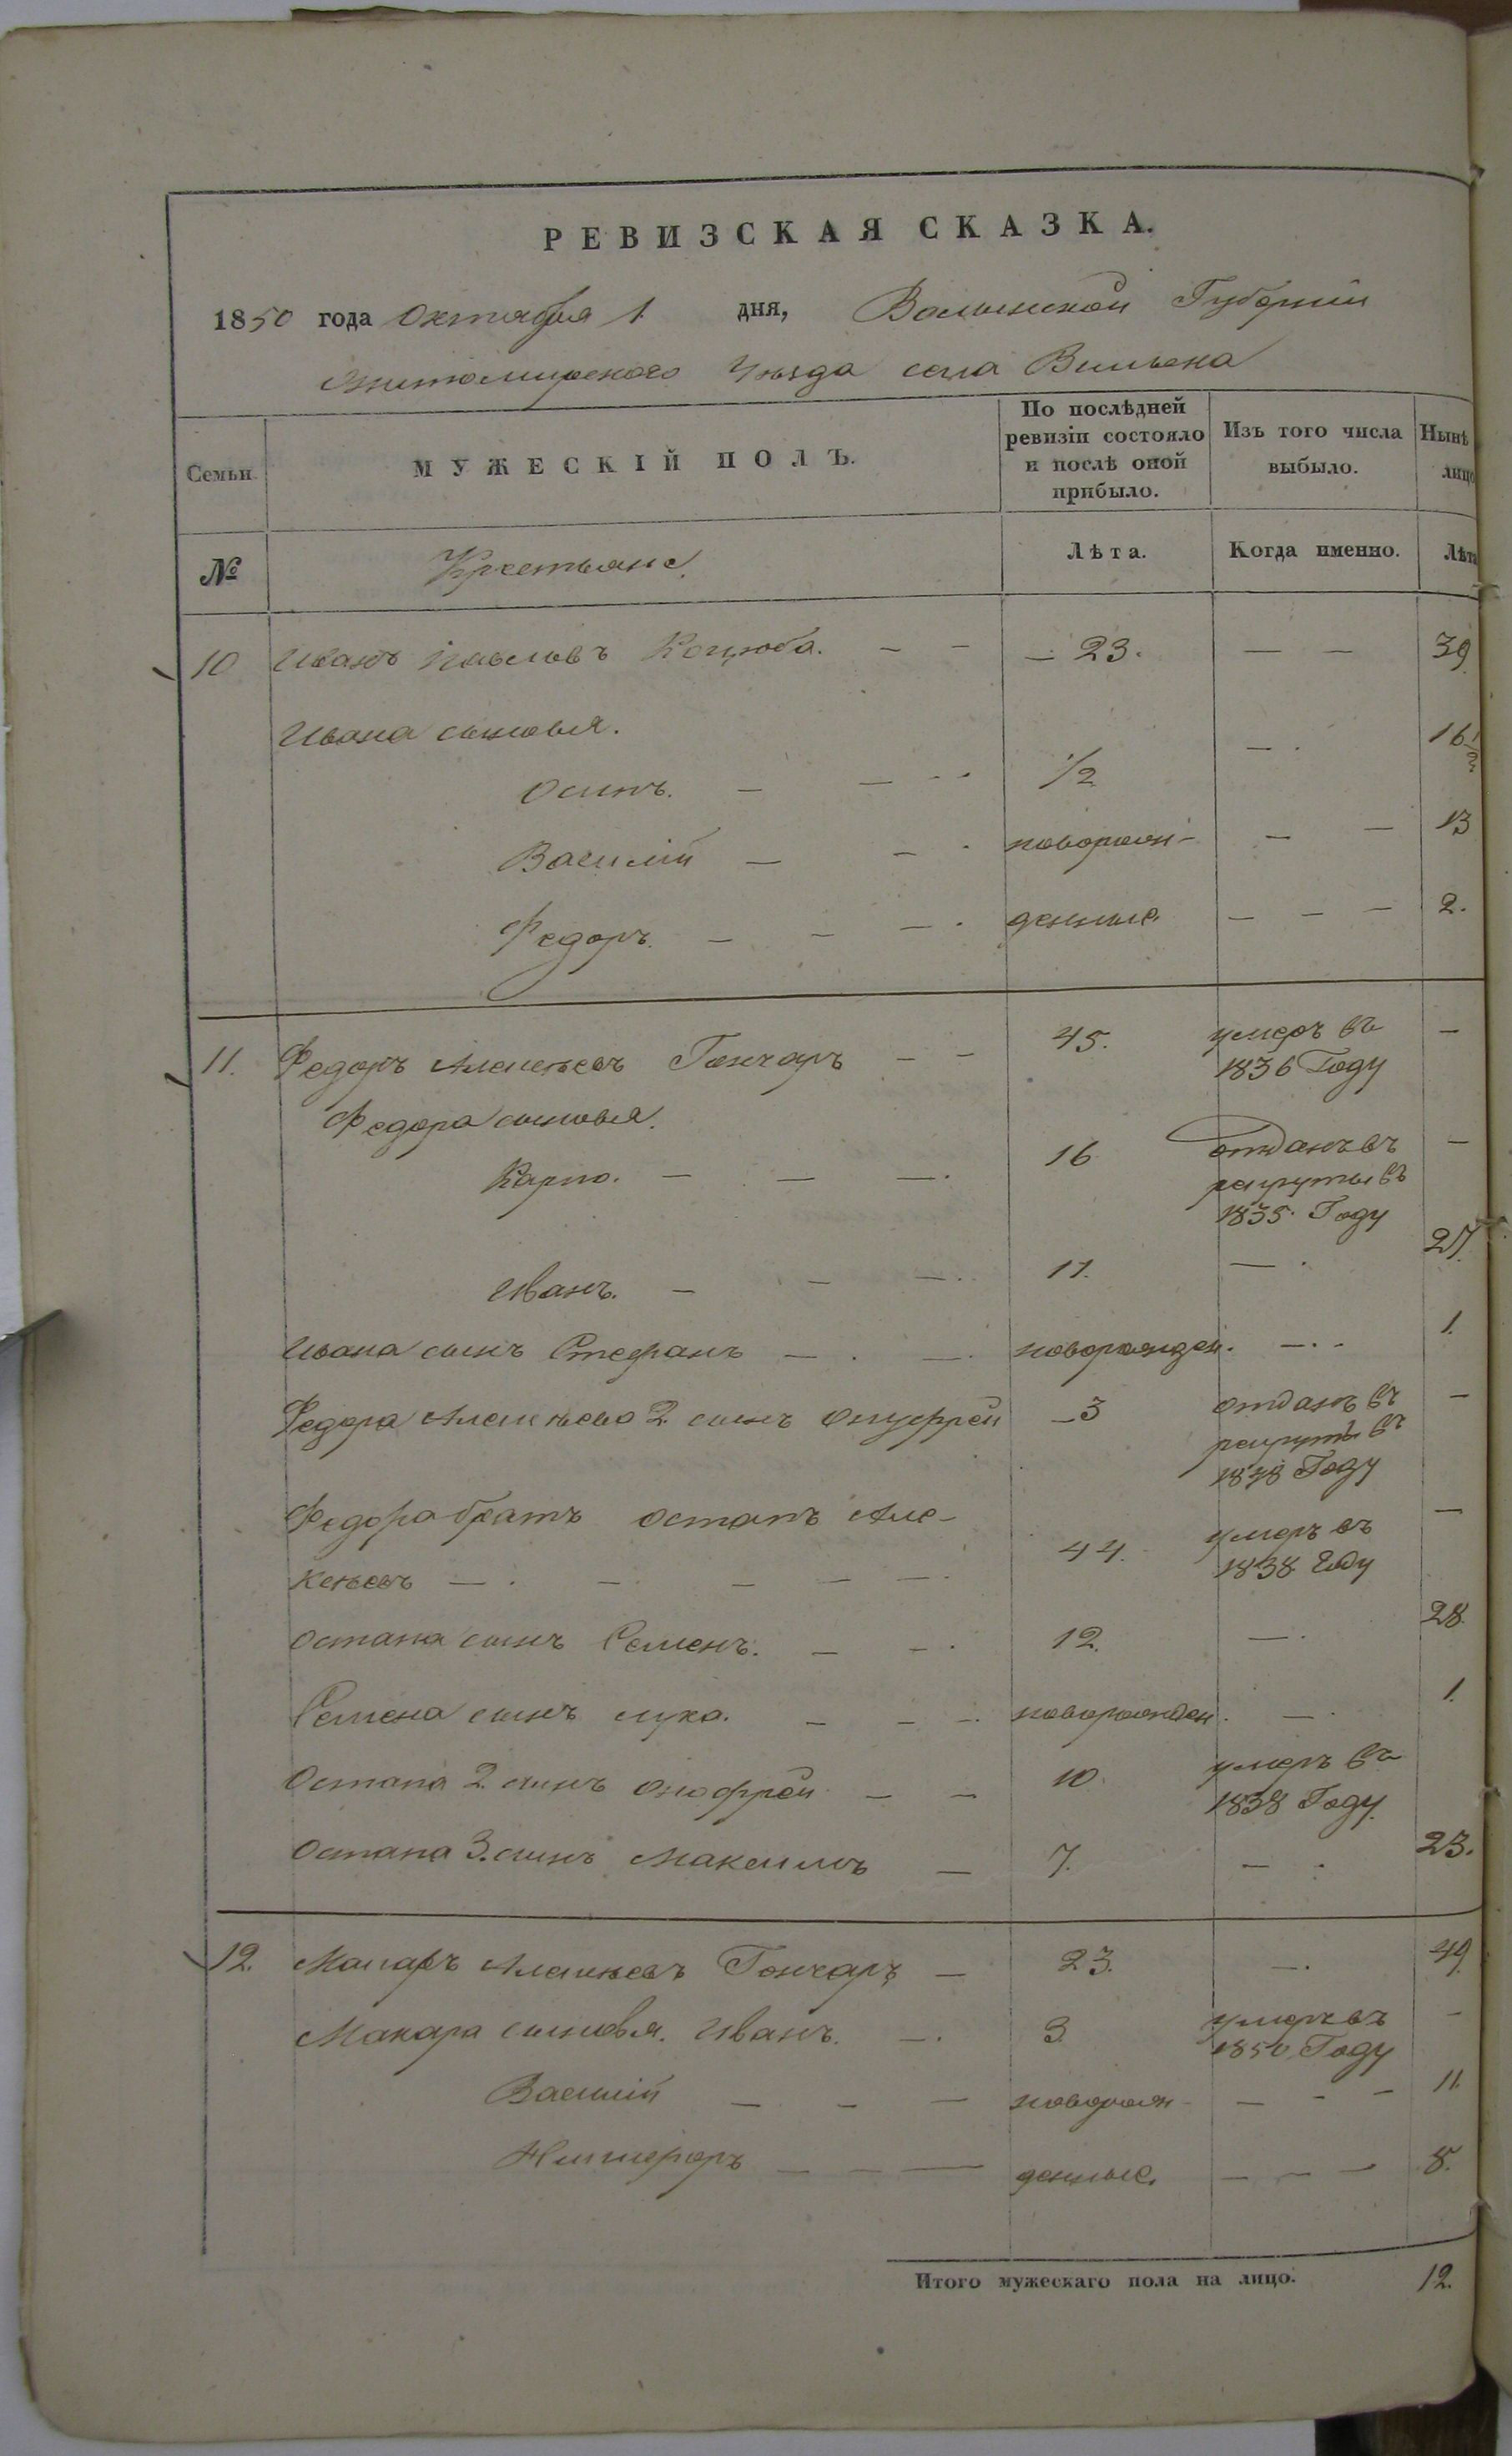 РЕВИЗСКАЯ СКАЗКА.
1850 года Октября 1 дня, Волынской Губерніи
Житомирского Уѣзда села Вильска
Семьи. МУЖЕСКІЙ ПОЛЪ. По послѣдней ревизіи состояло и послѣ оной прибыло. Изъ того числа выбыло. Нынѣ лицо
№ Крестьяне. Лѣта. Когда именно. Лѣта
10 Иванъ Павловъ Коцюба. — — — 23. — — 39.
Ивана сыновья.
Осипъ. — — - - 1/2 — . 16 1/2
Василій — — . новорож- — — 13
Федоръ. — — — . денные. — — — 2.
11. Федоръ Алексѣевъ Гончаръ — — 45. умеръ въ —
1836 Году
Федора сыновья.
Карпо. — — —. 16 отданъ въ —
рекруты въ
1835. Году
Иванъ. — — —. 11. — . 27.
Ивана сынъ Стефанъ — . —. новорожден. —. - 1.
Федора Алексѣева 2 сынъ Онуфрей — 3 отданъ въ —
рекруты въ
1848 Году
Федора братъ Остапъ Але-
ксѣевъ — . — — — —. 44. умеръ въ —
1838 Году
Остапа сынъ Семенъ. — — . 12. — . 28
Семена сынъ Лука. — — — новорожден. — . 1.
Остапа 2 сынъ Онофрей — — 10. умеръ въ
1838 Году.
Остапа 3. сынъ Максимъ — 7. — . 23.
12. Макаръ Алексѣевъ Гончаръ — 23. —. 49.
Макара сыновья. Иванъ. —. 3. умеръ въ —
1850 Году
Василій — — — новорож- — - — 11.
Никифоръ — — — денные. — — — 8.
Итого мужескаго пола на лицо. 12.